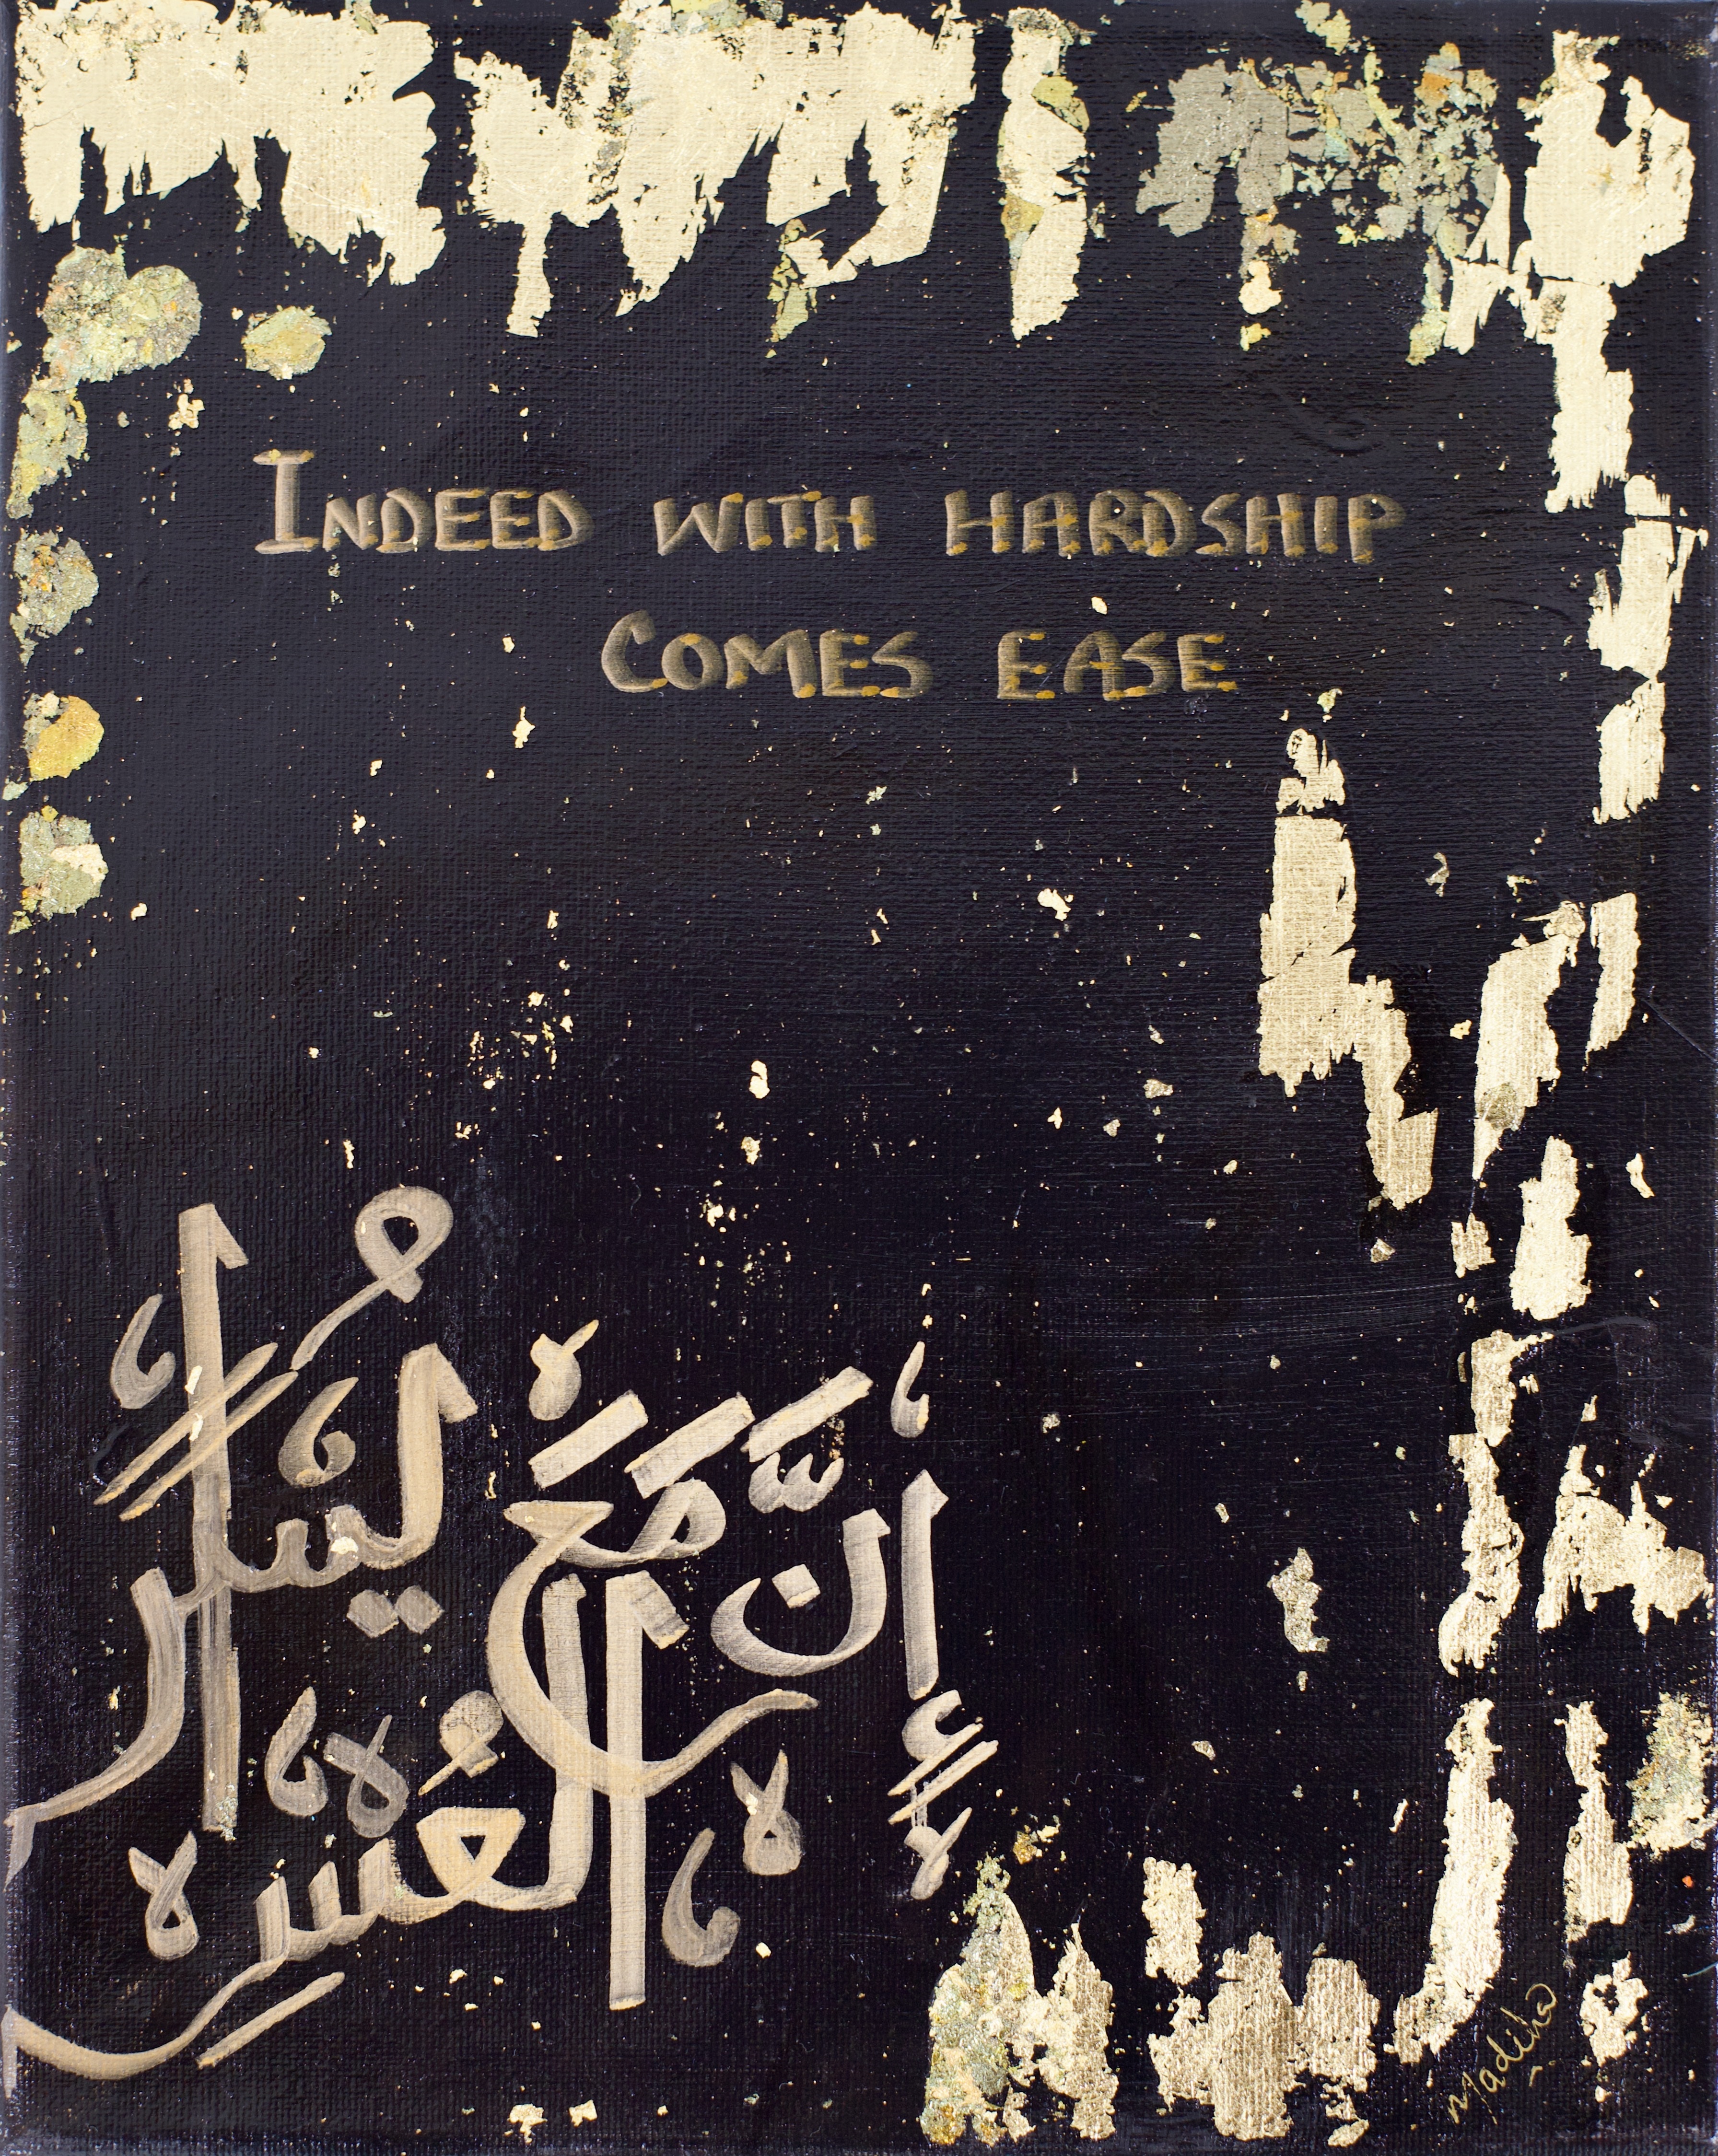 Indeed with hardship
Comes ease
إِنَّ مَعَ الْعُسْرِ يُسْرًا
Madiha